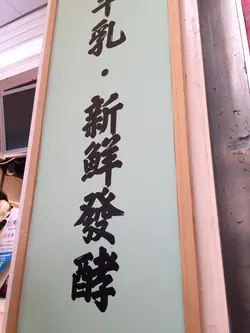 乳·新鮮發酵